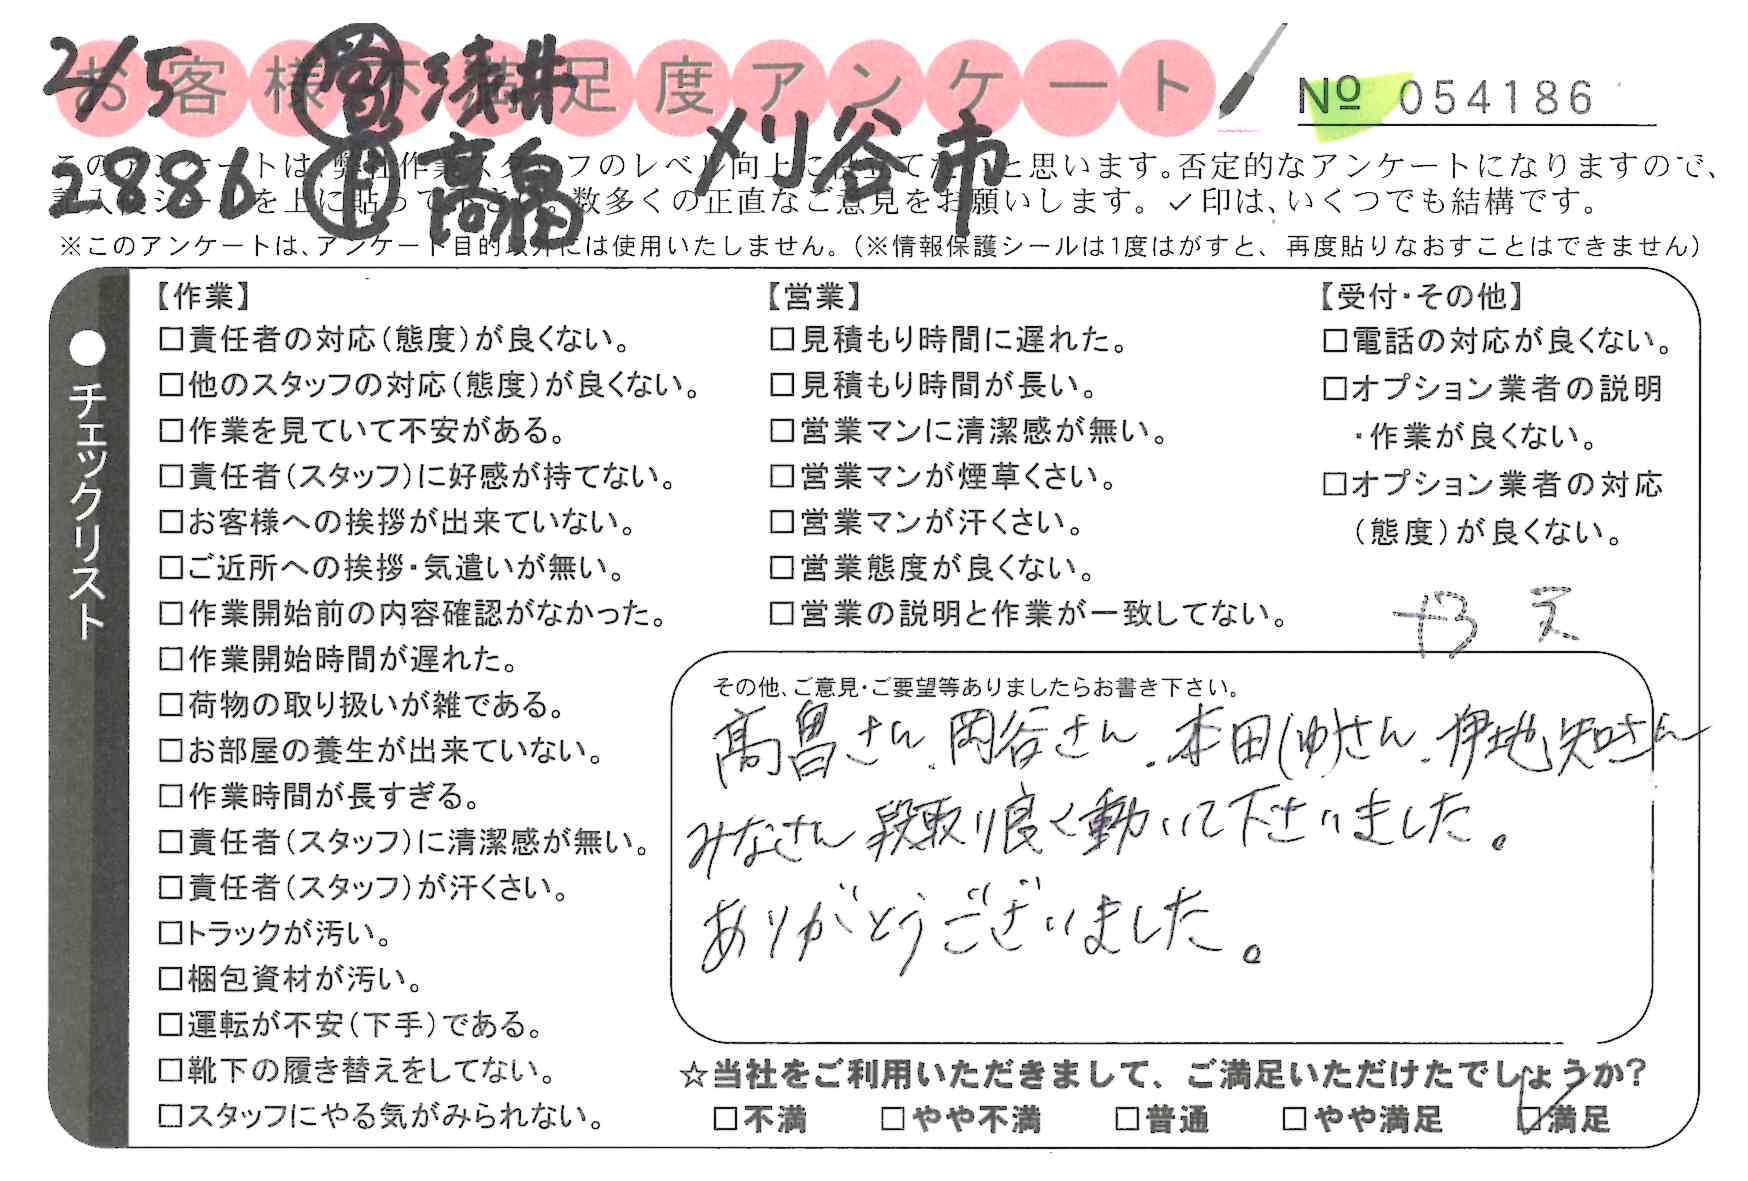 2/5 営 浅井
お客様不満足度アンケート
№ 054186
2886 高畠 刈谷市
このアンケートは、弊社作業スタッフのレベル向上に役立てたいと思います。否定的なアンケートになりますので、
記入後シールを上に貼って下さい。数多くの正直なご意見をお願いします。✓印は、いくつでも結構です。
※このアンケートは、アンケート目的以外には使用いたしません。(※情報保護シールは1度はがすと、再度貼りなおすことはできません)
●チェックリスト
【作業】
□責任者の対応(態度)が良くない。
□他のスタッフの対応(態度)が良くない。
□作業を見ていて不安がある。
□責任者(スタッフ)に好感が持てない。
□お客様への挨拶が出来ていない。
□ご近所への挨拶・気遣いが無い。
□作業開始前の内容確認がなかった。
□作業開始時間が遅れた。
□荷物の取り扱いが雑である。
□お部屋の養生が出来ていない。
□作業時間が長すぎる。
□責任者(スタッフ)に清潔感が無い。
□責任者(スタッフ)が汗くさい。
□トラックが汚い。
□梱包資材が汚い。
□運転が不安(下手)である。
□靴下の履き替えをしてない。
□スタッフにやる気がみられない。
【営業】
□見積もり時間に遅れた。
□見積もり時間が長い。
□営業マンに清潔感が無い。
□営業マンが煙草くさい。
□営業マンが汗くさい。
□営業態度が良くない。
□営業の説明と作業が一致してない。
【受付・その他】
□電話の対応が良くない。
□オプション業者の説明
・作業が良くない。
□オプション業者の対応
(態度)が良くない。
その他、ご意見・ご要望等ありましたらお書き下さい。
高畠さん、岡谷さん、本田(ゆ)さん、伊地知さん
みなさん段取り良く動いて下さいました。
ありがとうございました。
☆当社をご利用いただきまして、ご満足いただけたでしょうか?
□不満 □やや不満 □普通 □やや満足 ☑満足